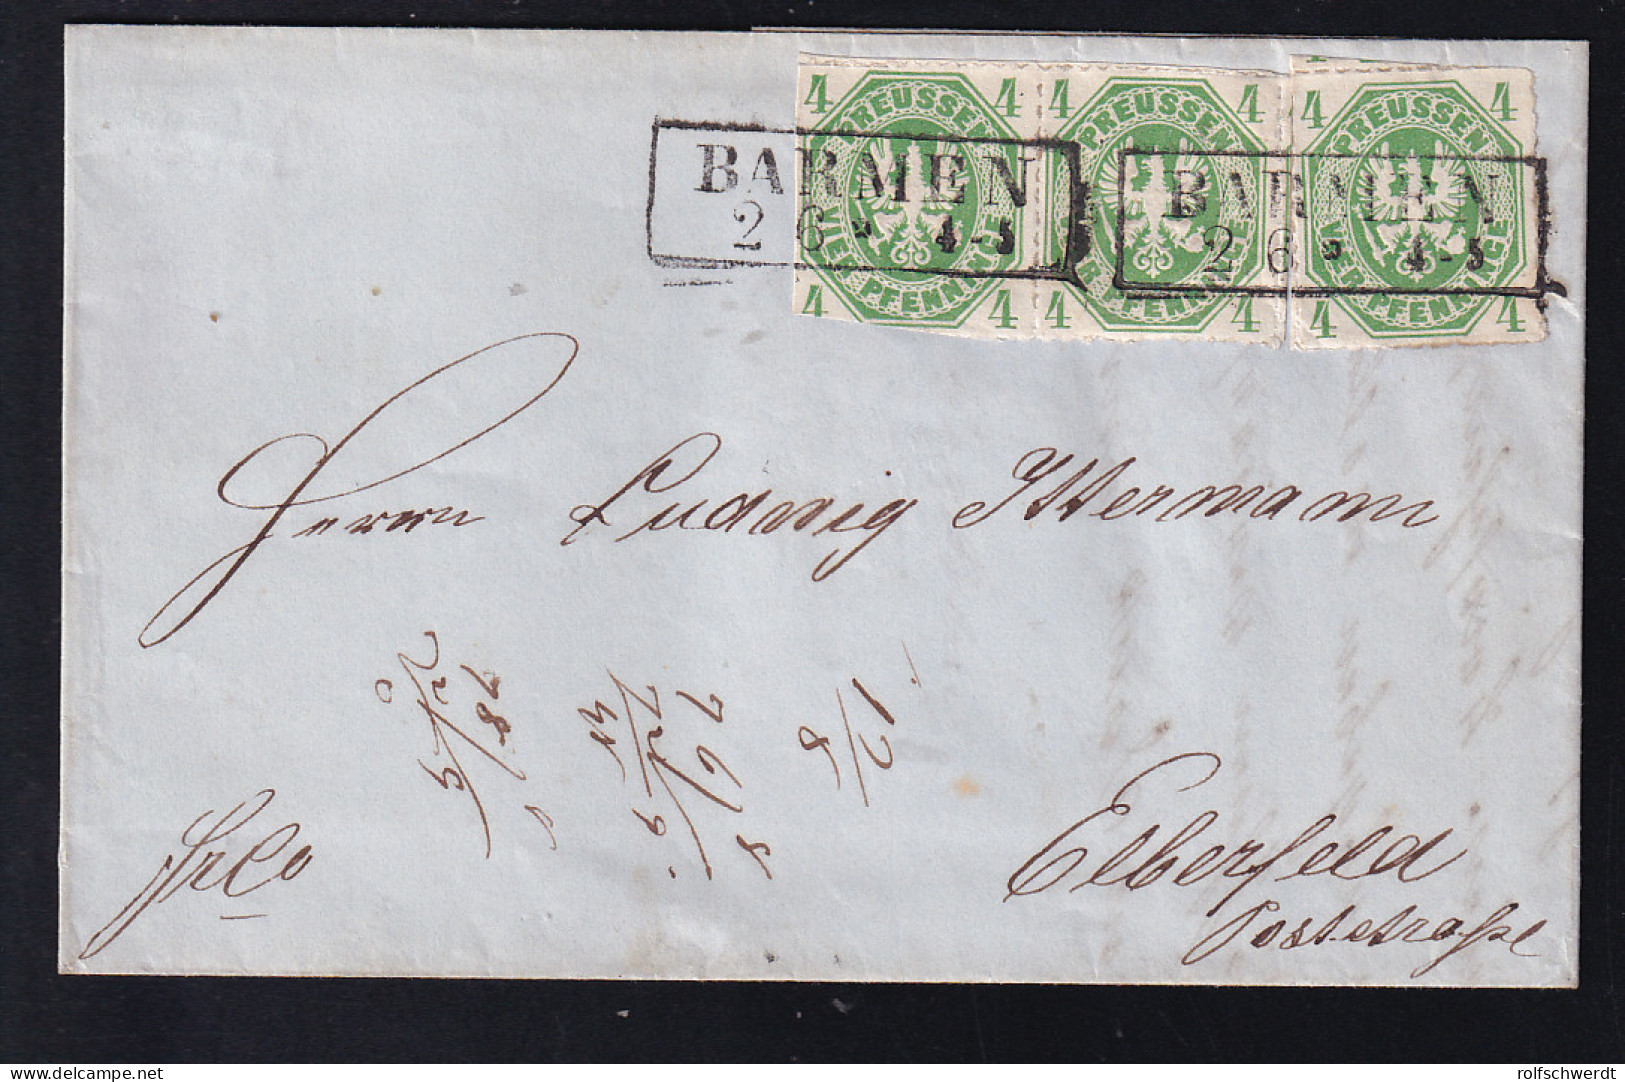 4 4 4 4 4 4
PREUSSEN PREUSSEN PREUSSEN
BARMEN BARMEN
2 6 4-5 2 6 4-5
VIER PFENNINGE VIER PFENNINGE VIER PFENNINGE
4 4 4 4 4 4
Herrn Ludwig Ittermann
Elberfeld
Poststraße
frco
the-world's-largest-marketplace.delcampe.net
rolfschwerdt